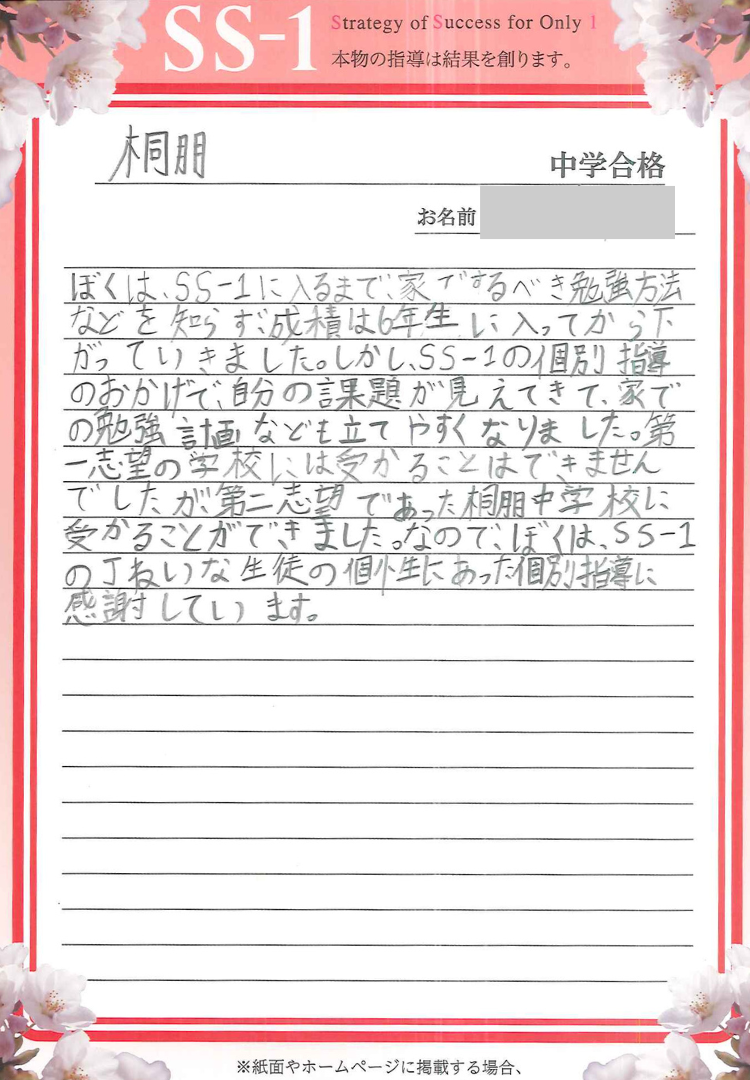 SS-1
Strategy of Success for Only 1
本物の指導は結果を創ります。
桐朋
中学合格
お名前
ぼくは、SS-1に入るまで、家でするべき勉強方法
などを知らず、成積は6年生に入ってから下
がっていきました。しかし、SS-1の個別指導
のおかげで、自分の課題が見えてきて、家で
の勉強計画なども立てやすくなりました。第
一志望の学校には受かることはできません
でしたが、第二志望であった桐朋中学校に
受かることができました。なので、ぼくは、SS-1
の丁ねいな生徒の個性にあった個別指導に
感謝しています。
※紙面やホームページに掲載する場合、